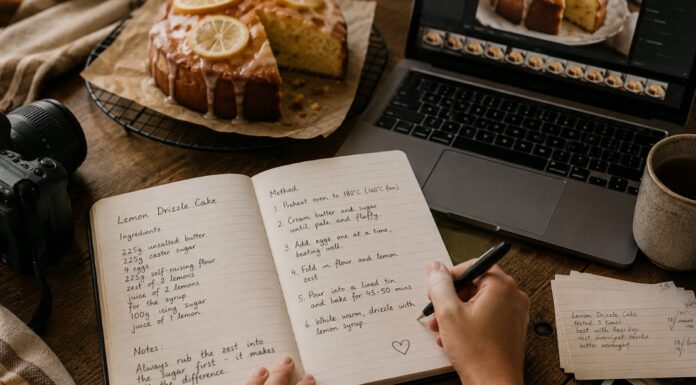 Lemon Drizzle Cake
Ingredients
225g unsalted butter
225g caster sugar
4 eggs
225g self-raising flour
zest of 2 lemons
juice of 2 lemons
for the syrup
100g icing sugar
juice of 1 lemon
Notes:
Always rub the zest into
the sugar first - it makes
the difference.
Method
1. Preheat oven to 180°C (160°C fan)
2. Cream butter and sugar
until pale and fluffy.
3. Add eggs one at a time,
beating well.
4. Fold in flour and lemon
zest.
5. Pour into a lined tin
and bake for 45-50 mins
6. While warm, drizzle with
lemon syrup.
Lemon Drizzle Cake
tested 3 times
best with
rest overnight
butter